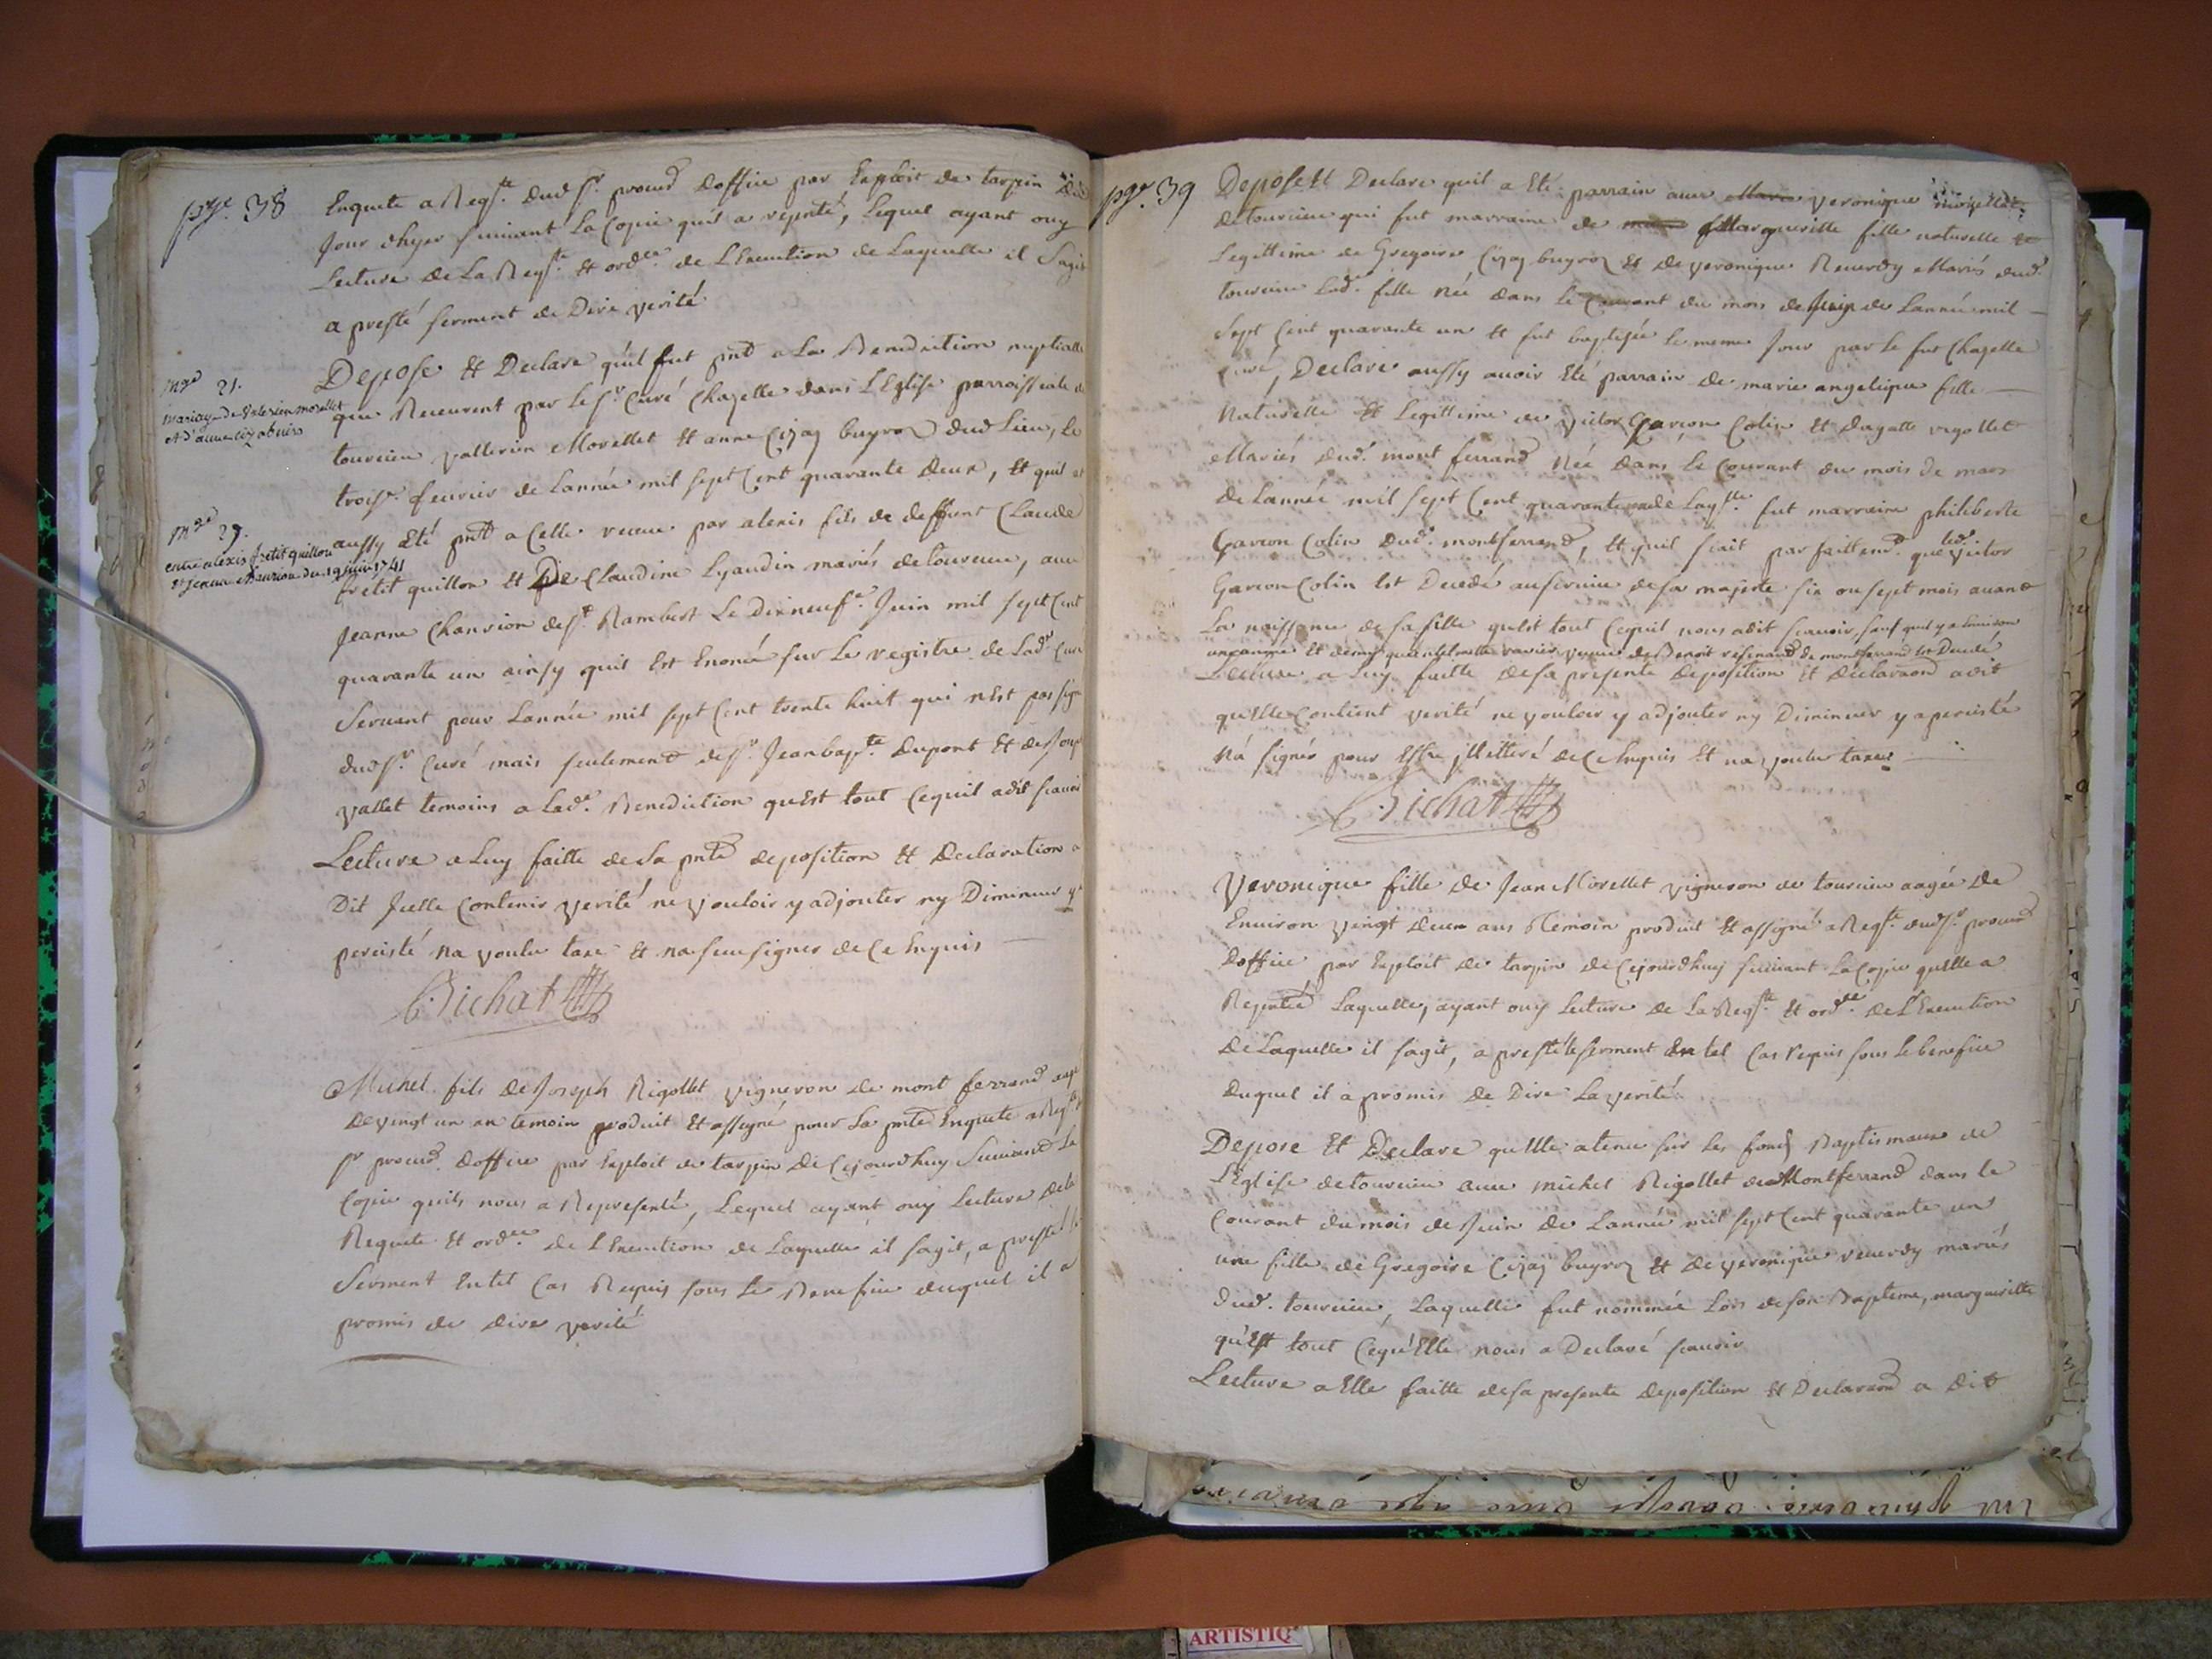 pge. 38
Enquete a Reqte. dud sr. procurd Doffice par Exploit de tarpin du
Jour dhyer suivant La Copie quil a repntée, Lequel ayant ouy
Lecture de La Reqte. Et ordce. de L'Execution de Laquelle il sagit
a presté serment de Dire verité
Depose Et Declare quil fut pnt a La Benediction nuptialle
mge 21.
mariage de Valerien morellet
et d'anne cizabuiro
que Receurent par le sr. Curé Chazelle dans L'Eglise parroissiale de
tourcieu vallerien Morellet Et anne Cizaj buyroz dud Lieu, le
troise. feurier de Lannée mil sept Cent quarante deux, Et quil at
mge 29.
entre alexis fretit quillon
et jeanne chanrion du 19 juin 1741
aussy Eté pnt a Celle receue par alexis fils de deffunt Claude
fretit quillon Et De Claudine Lyaudin mariés de tourcieu, avec
Jeanne Chanrion de st. Rambert Le dixneufe. Juin mil sept Cent
quarante un ainsy quil Est Enoncé sur Le registre de Lade. Cure
Servant pour Lannée mil sept Cent trente huit qui nEst pas signé
dud sr. Curé mais seulement des sr. Jean bapte. Dupont Et de Joseph
vallet temoins a Lade. Benediction quEst tout Cequil adit scavoir
Lecture a Luy faitte de Sa pnte deposition Et Declaration a
Dit Jcelle Contenir verité ne vouloir y adjouter ny Diminuer y a
percisté na voulu taxe Et na sceu signer de Ce Enquis
Bichat
Michel fils de Joseph Rigollet vigneron de mont ferrand aagé
de vingt un an temoin produit Et assigné pour La pnte Enquete a Reqte.
sr procurd. Doffice par Exploit de tarpin de Cejourdhuy Suivant La
Copie quils nous a Representé, Lequel ayant ouy Lecture de la
Requete Et ordce. de L'Execution de Laquelle il sagit, a presté le
Serment Entel Cas Requis sous Le Benefice duquel il a
promis de dire verité
pge. 39
Depose Et Declare quil a Eté parrain avec veronique morellet
de tourcieu qui fut marraine de Margueritte fille naturelle Et
Legittime de Gregoire Cizaj buyroz Et de veronique Reverdy Mariés dud.
tourcieu Lade. fille Née dans le Courant du mois de Juin de Lannée mil
Sept Cent quarante un Et fut baptisée Le meme Jour par Le sr Chazelle
Curé, Declare aussy avoir Eté parrain de marie angelique fille
Naturelle Et Legittime de victor Garcon Colin Et Dagatte rigollet
Mariés dud. mont ferrand Née dans Le Courant du mois de mars
de Lannée mil sept Cent quarante un de Laqlle. fut marraine philiberte
Garcon Colin dud. montferrand, Et quil scait parfaittemt. que led. victor
Garcon Colin Est Decedé auservice de sa majesté six ou sept mois avant
La naissance de sa fille quEst tout Cequil nous adit scavoir, sauf quil y a Environ
une année Et demy que veuve de Benoit de montferrand Est Decedé
Lecture a Luy faitte de sa presente deposition Et declaraon adit
quElle Contient verité ne vouloir y adjouter ny Diminuer y apercisté
Na signés pour Estre jlletteré de Ce Enquis Et na voulu taxe
Bichat
Veronique fille de Jean Morellet vigneron de tourcieu aagée de
Environ vingt deux ans temoin produit Et assigné a Reqte. dud sr. procurd
doffice par Exploit de tarpin de Cejourdhuy suivant La Copie quElle a
Repntée Laquelle, ayant ouy Lecture de La Reqte. Et ordce. de L'Execution
de Laquelle il sagit, a presté le serment En tel Cas requis sous le benefice
duquel il a promis de Dire La verité
Depose Et Declare quElle atenu sur Les fonds Baptismaux de
L'Eglise de tourcieu avec michel Rigollet de Montferrand dans le
Courant du mois de Juin de Lannée mil sept Cent quarante un
une fille de Gregoire Cizaj buyroz Et de veronique reverdy mariés
dud. tourcieu, Laquelle fut nommée Lors de son Bapteme, marguerille
quEst tout CequElle nous a Declaré scavoir
Lecture a Elle faitte de sa presente deposition Et Declaraon a dit
ARTISTIQ